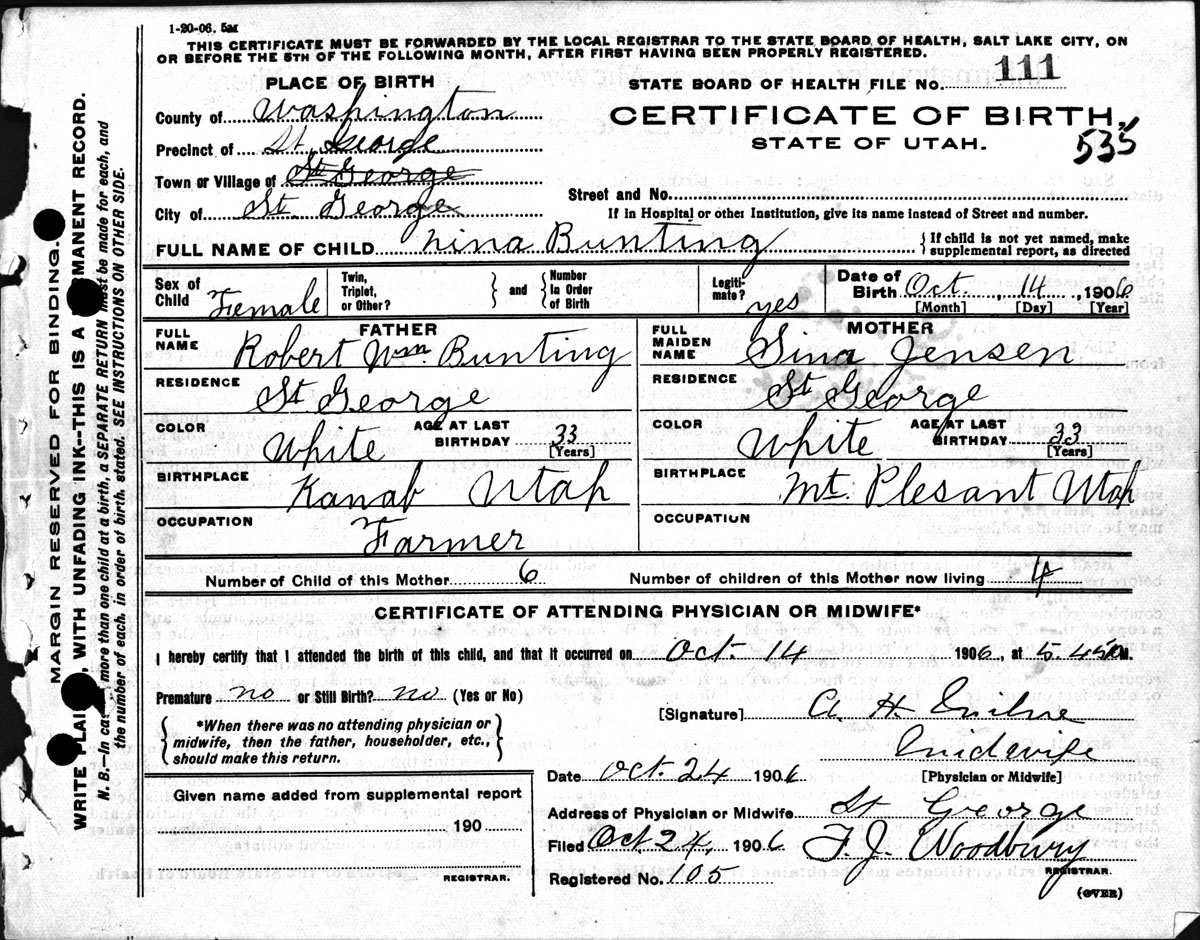 1-20-06. 5M
THIS CERTIFICATE MUST BE FORWARDED BY THE LOCAL REGISTRAR TO THE STATE BOARD OF HEALTH, SALT LAKE CITY, ON
OR BEFORE THE 5TH OF THE FOLLOWING MONTH, AFTER FIRST HAVING BEEN PROPERLY REGISTERED.
PLACE OF BIRTH
County of Washington
Precinct of St. George
Town or Village of St George
City of St George
STATE BOARD OF HEALTH FILE NO. 111
CERTIFICATE OF BIRTH.
STATE OF UTAH.
535
Street and No.
If in Hospital or other Institution, give its name instead of Street and number.
FULL NAME OF CHILD Nina Bunting
{If child is not yet named, make
supplemental report, as directed
Sex of Child Female
Twin, Triplet, or Other? } and { Number in Order of Birth
Legiti-mate? yes
Date of Birth Oct. 14, 1906
[Month] [Day] [Year]
FATHER
FULL NAME Robert Wm. Bunting
RESIDENCE St George
COLOR White AGE AT LAST BIRTHDAY 33 [Years]
BIRTHPLACE Kanab Utah
OCCUPATION Farmer
MOTHER
FULL MAIDEN NAME Sina Jensen
RESIDENCE St George
COLOR White AGE AT LAST BIRTHDAY 33 [Years]
BIRTHPLACE Mt. Plesant Utah
OCCUPATION
Number of Child of this Mother 6 Number of children of this Mother now living 4
CERTIFICATE OF ATTENDING PHYSICIAN OR MIDWIFE*
I hereby certify that I attended the birth of this child, and that it occurred on Oct. 14 1906, at 5 45 M.
Premature no or Still Birth? no (Yes or No)
{*When there was no attending physician or
midwife, then the father, householder, etc.,
should make this return.}
[Signature] A. H.
Midwife
[Physician or Midwife]
Date Oct. 24 1906
Address of Physician or Midwife St George
Filed Oct 24, 1906 F. J. Woodbury
REGISTRAR.
Registered No. 105
(OVER)
Given name added from supplemental report
190
REGISTRAR.
MARGIN RESERVED FOR BINDING.
WRITE WITH UNFADING INK--THIS IS A RECORD.
N. B.--In more than one child at a birth, a SEPARATE RETURN must be made for each, and
the number of each, in order of birth, stated. SEE INSTRUCTIONS ON OTHER SIDE.